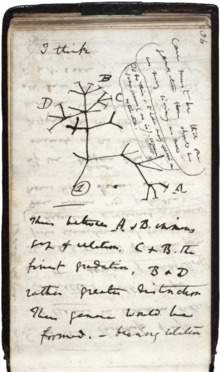 I think
36
Case must be that one
generation then should
be as many living as now
To do this & to have many species
in same genus (as is) requires
extinction.
B
D
C
A
1
Thus between A & B. immens
gap of relation. C & B. the
finest gradation, B & D
rather greater distinction
Thus genera would be
formed. — bearing relation